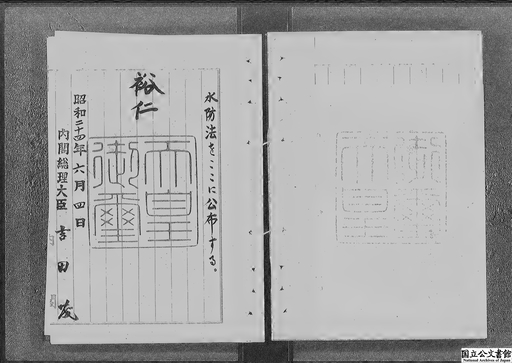 水防法をここに公布する。
裕仁
天皇
御璽
昭和二十四年六月四日
内閣総理大臣 吉田茂
国立公文書館
National Archives of Japan